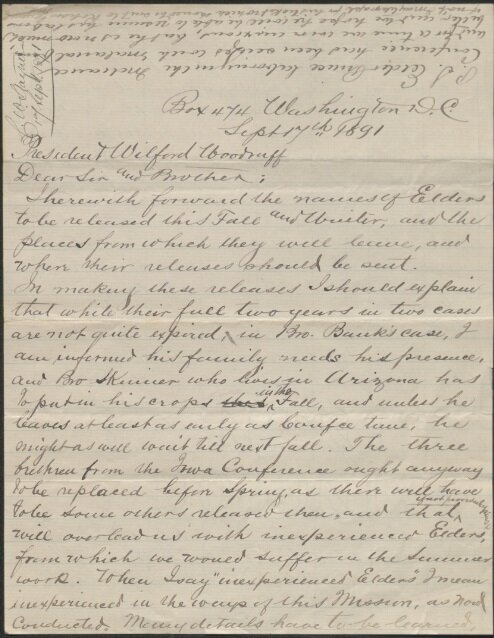 Box 474 Washington D.C.
Sept 17th 1891
President Wilford Woodruff
Dear Sir and Brother;
I herewith forward the names of Elders
to be released this Fall and Winter, and the
places from which they will leave, and
where their releases should be sent.
In making these releases I should explain
that while their full two years in two cases
are not quite expired, in Bro. Bank's case, I
am informed his family needs his presence,
and Bro Skinner who lives in Arizona has
to put in his crops in the Fall, and unless he
leaves at least as early as Confce time, he
might as well wait till next fall. The three
brethren from the Iowa Conference ought anyway
to be replaced before Spring, as there will have
to be some others released then, and that
will overload us with inexperienced Elders,
from which we would suffer in the Summer
work. When I say "inexperienced Elders" I mean
inexperienced in the ways of this Mission, as now
conducted. Many details have to be learned
P.S. Elder Bruce laboring in the Indiana
Conference had been
better and we hope he will be able to